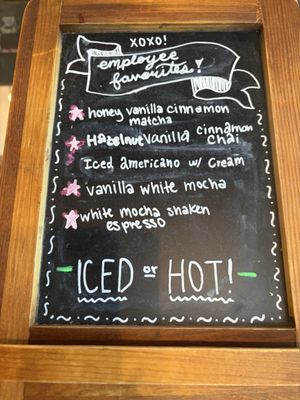 XOXO!
employee
favorites!
honey vanilla cinnamon
matcha
Hazelnut vanilla cinnamon
chai
Iced americano w/ cream
vanilla white mocha
white mocha shaken
espresso
ICED or HOT!